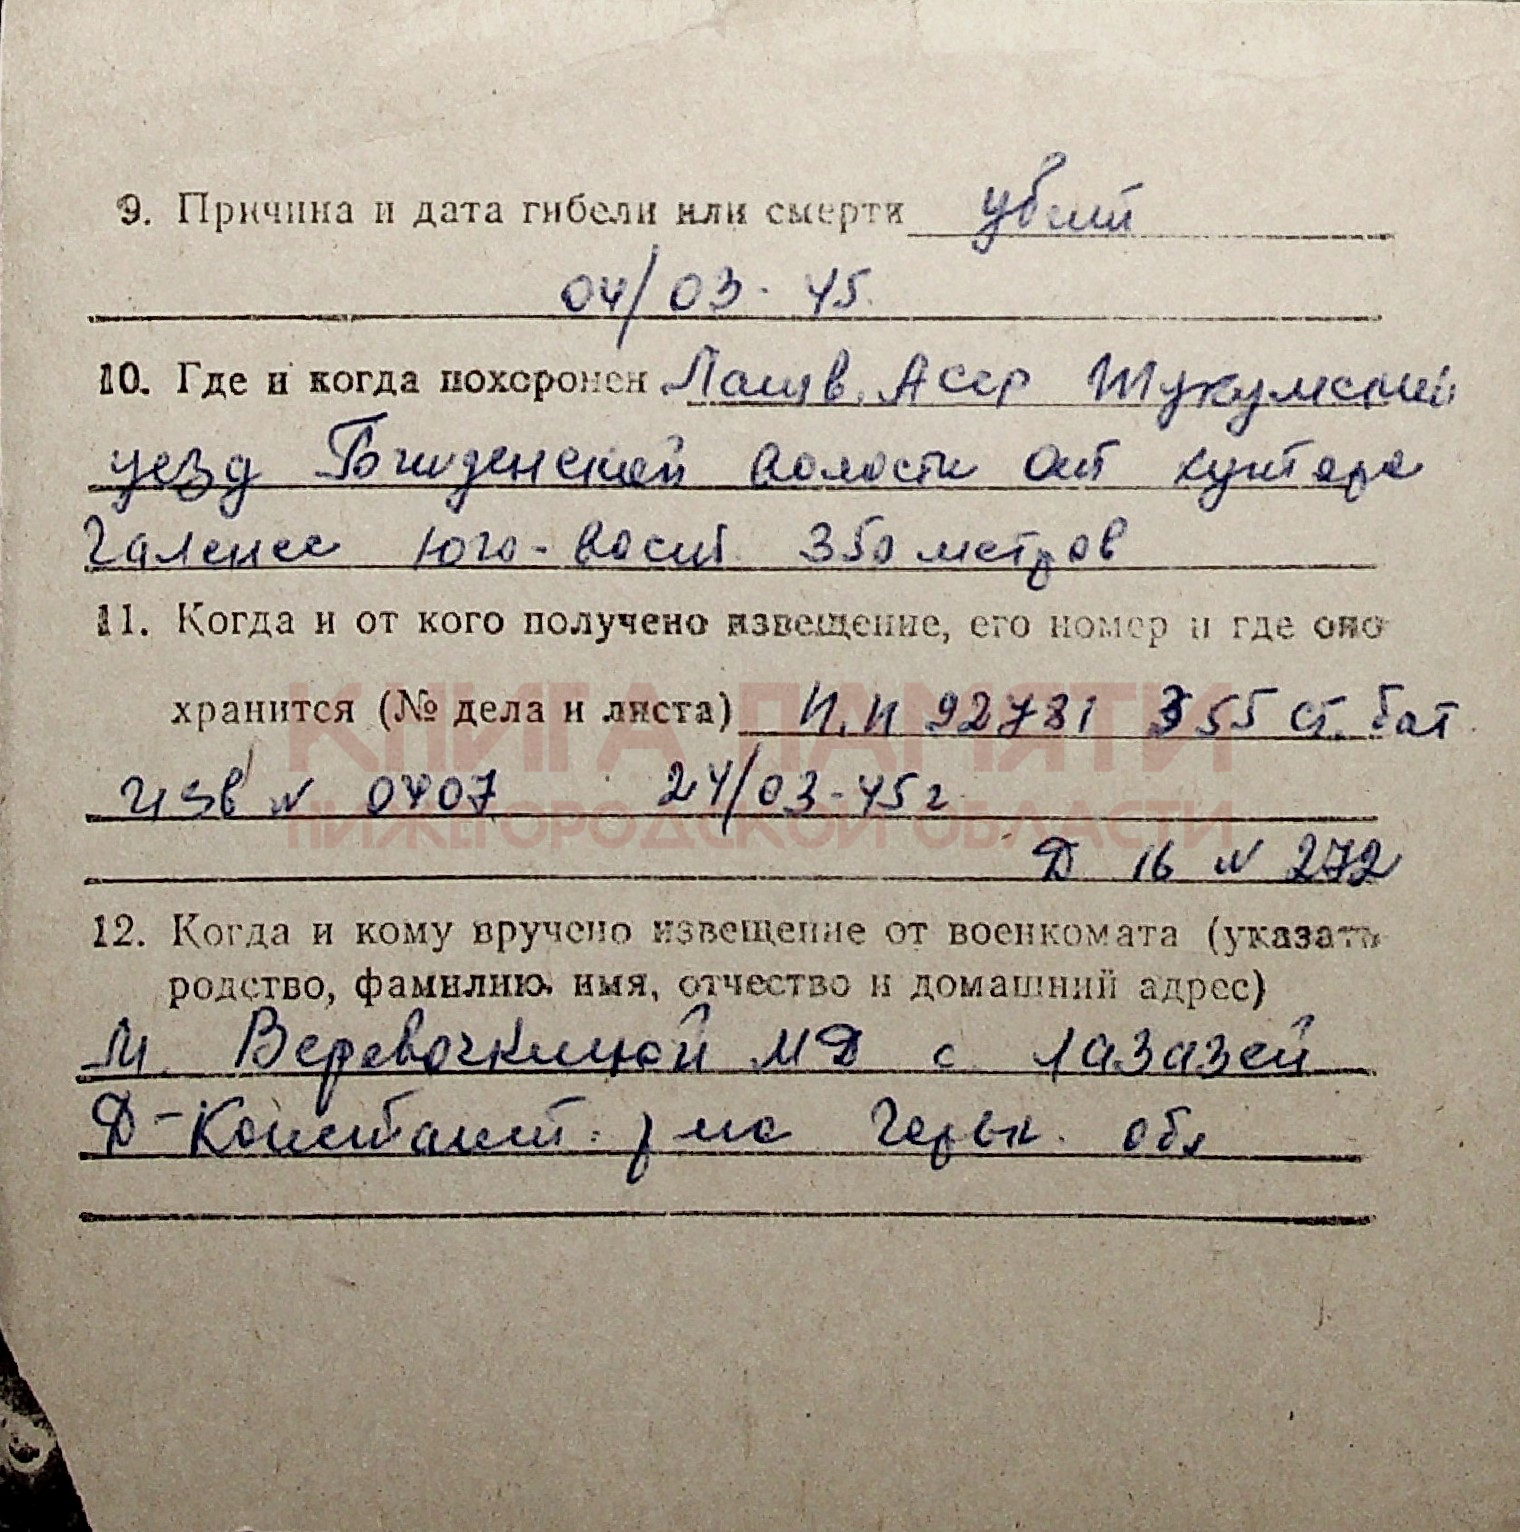 9. Причина и дата гибели или смерти убит
04/03-45
10. Где и когда похоронен Латв. Асср Тукумский
уезд волости от хутора
Галенес юго-вост 350 метров
11. Когда и от кого получено извещение, его номер и где оно
хранится (№ дела и листа) П.П 92781 355 ст. бат
КНИГА ПАМЯТИ
Изв N 0407 24/03-45г
НИЖЕГОРОДСКОЙ ОБЛАСТИ
Д 16 N 272
12. Когда и кому вручено извещение от военкомата (указать
родство, фамилию, имя, отчество и домашний адрес)
М. Веревочкиной МД с Лазазей
Д-Констант. р-на Горьк. обл